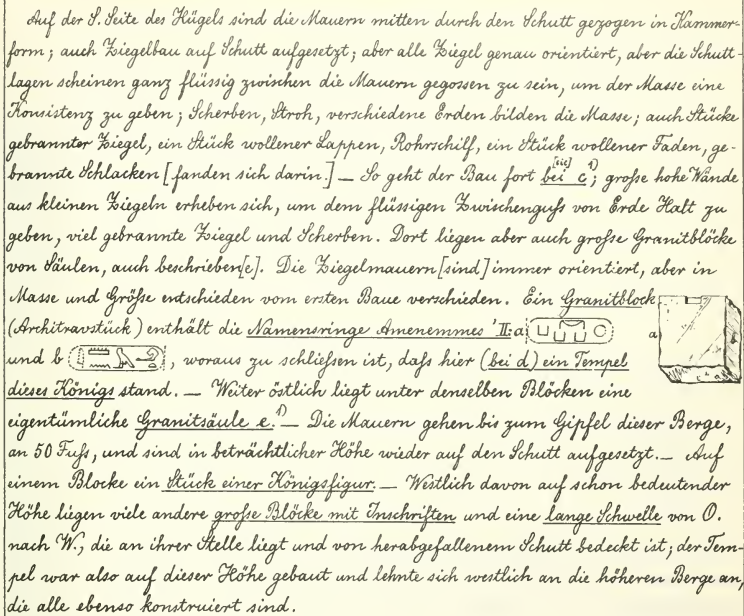 Auf der S. Seite des Hügels sind die Mauern mitten durch den Schutt gezogen in Kammer-
form; auch Ziegelbau auf Schutt aufgesetzt; aber alle Ziegel genau orientiert, aber die Schutt-
lagen scheinen ganz flüssig zwischen die Mauern gegossen zu sein, um der Masse eine
Konsistenz zu geben; Scherben, Stroh, verschiedene Erden bilden die Masse; auch Stücke
gebrannter Ziegel, ein Stück wollener Lappen, Rohrschilf, ein Stück wollener Faden, ge-
brannte Schlacken [fanden sich darin.] — So geht der Bau fort bei [sic] c¹⁾; große hohe Wände
aus kleinen Ziegeln erheben sich, um dem flüssigen Zwischenguß von Erde Halt zu
geben, viel gebrannte Ziegel und Scherben. Dort liegen aber auch große Granitblöcke
von Säulen, auch beschrieben[e]. Die Ziegelmauern [sind] immer orientiert, aber in
Masse und Größe entschieden vom ersten Baue verschieden. Ein Granitblock
(Architravstück) enthält die Namensringe Amenemmes' II: a a
und b, woraus zu schließen ist, daß hier (bei d) ein Tempel
dieses Königs stand. — Weiter östlich liegt unter denselben Blöcken eine
eigentümliche Granitsäule e.¹⁾ — Die Mauern gehen bis zum Gipfel dieser Berge,
an 50 Fuß, und sind in beträchtlicher Höhe wieder auf den Schutt aufgesetzt. — Auf
einem Blocke ein Stück einer Königsfigur. — Westlich davon auf schon bedeutender
Höhe liegen viele andere große Blöcke mit Inschriften und eine lange Schwelle von O.
nach W., die an ihrer Stelle liegt und von herabgefallenem Schutt bedeckt ist; der Tem-
pel war also auf dieser Höhe gebaut und lehnte sich westlich an die höheren Berge an,
die alle ebenso konstruiert sind.